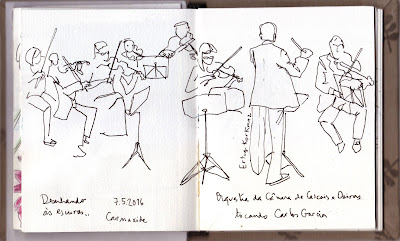 Desenhando
às escuras..
7.5.2016
Carnaxide
Ertug Korkmaz
Orquestra da Câmara de Cascais e Oeiras
tocando Carlos Garcia